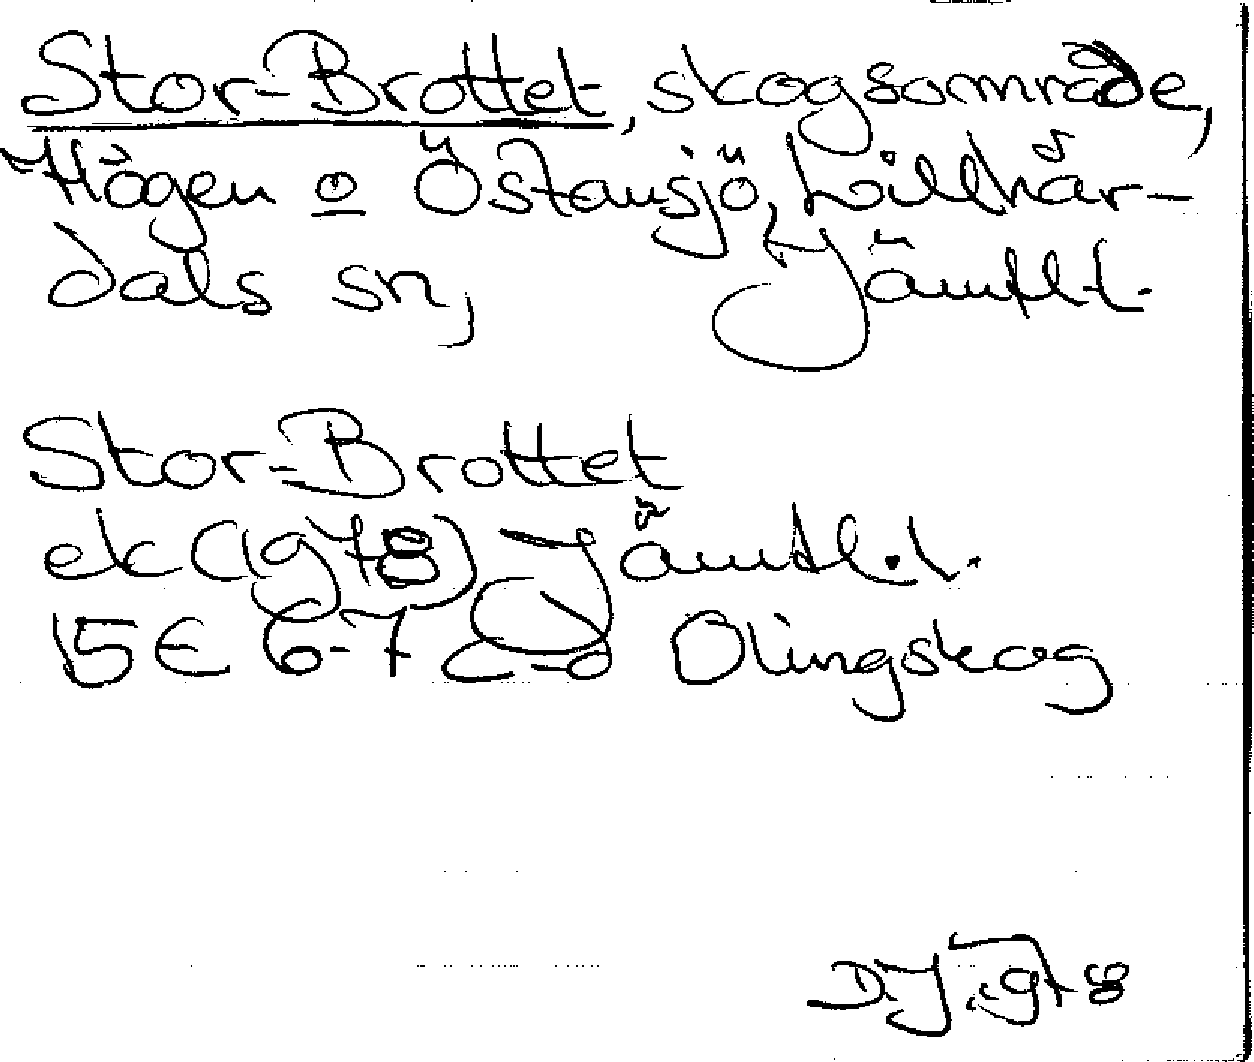 Stor-Brottet, skogsområde,
Högen o Östansjö, Lillhär-
dals sn, Jämtl.
Stor-Brottet
ek (1978) Jämtl.l.
15E 6-7 c-d Olingskog
D.J. 1978